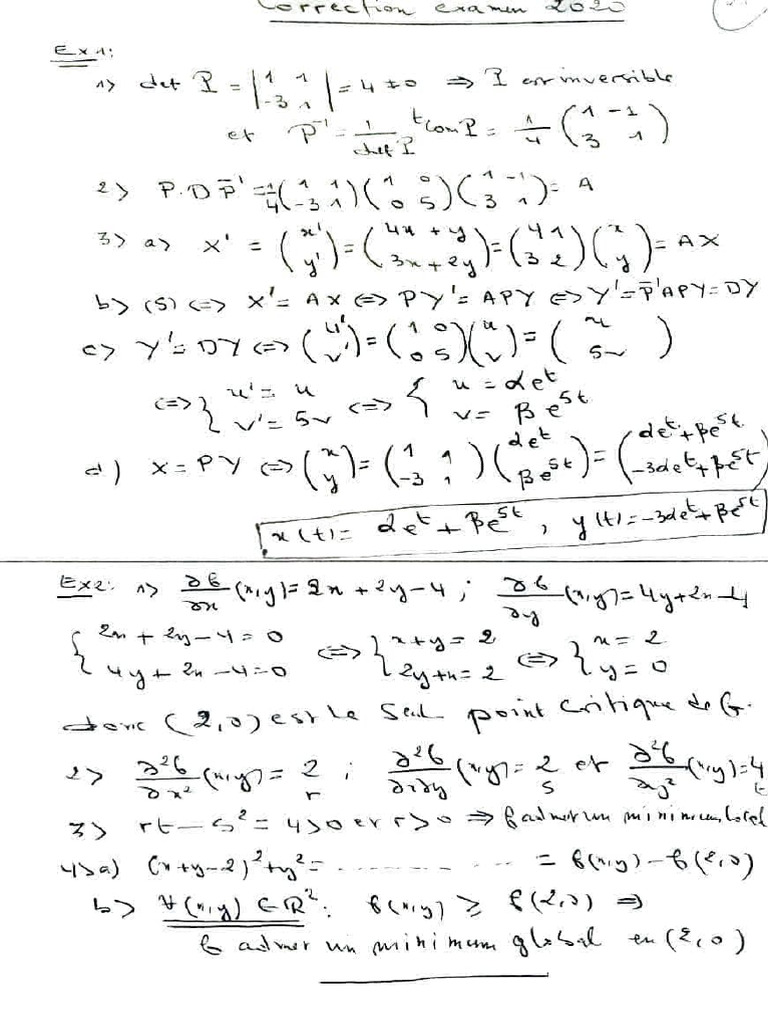 Correction examen 2020
Ex1:
1) det P = |1 1 ; -3 1| = 4 ≠ 0 ⇒ P est inversible
et P⁻¹ = 1/det P ᵗcom P = 1/4 (1 -1 ; 3 1)
2) P.D P⁻¹ = 1/4 (1 1 ; -3 1)(1 0 ; 0 5)(1 -1 ; 3 1) = A
3) a) X' = (x' ; y') = (4x + y ; 3x + 2y) = (4 1 ; 3 2)(x ; y) = AX
b) (S) ⇔ X' = AX ⇔ PY' = APY ⇔ Y' = P⁻¹APY = DY
c) Y' = DY ⇔ (u' ; v') = (1 0 ; 0 5)(u ; v) = (u ; 5v)
⇔ { u' = u ; v' = 5v ⇔ { u = αeᵗ ; v = βe⁵ᵗ
d) X = PY ⇔ (x ; y) = (1 1 ; -3 1)(αeᵗ ; βe⁵ᵗ) = (αeᵗ + βe⁵ᵗ ; -3αeᵗ + βe⁵ᵗ)
x(t) = αeᵗ + βe⁵ᵗ, y(t) = -3αeᵗ + βe⁵ᵗ
Ex2: 1) ∂f/∂x (x,y) = 2x + 2y - 4 ; ∂f/∂y (x,y) = 4y + 2x - 4
{ 2x + 2y - 4 = 0 ; 4y + 2x - 4 = 0 ⇔ { x + y = 2 ; 2y + x = 2 ⇔ { x = 2 ; y = 0
donc (2,0) est le seul point critique de f.
2) ∂²f/∂x² (x,y) = 2 r ; ∂²f/∂x∂y (x,y) = 2 s et ∂²f/∂y² (x,y) = 4 t
3) rt - s² = 4 > 0 et r > 0 ⇒ f admet un minimum local
4) a) (x + y - 2)² + y² = .............. = f(x,y) - f(2,0)
b) ∀(x,y) ∈ ℝ²: f(x,y) ≥ f(2,0) ⇒
f admet un minimum global en (2,0)